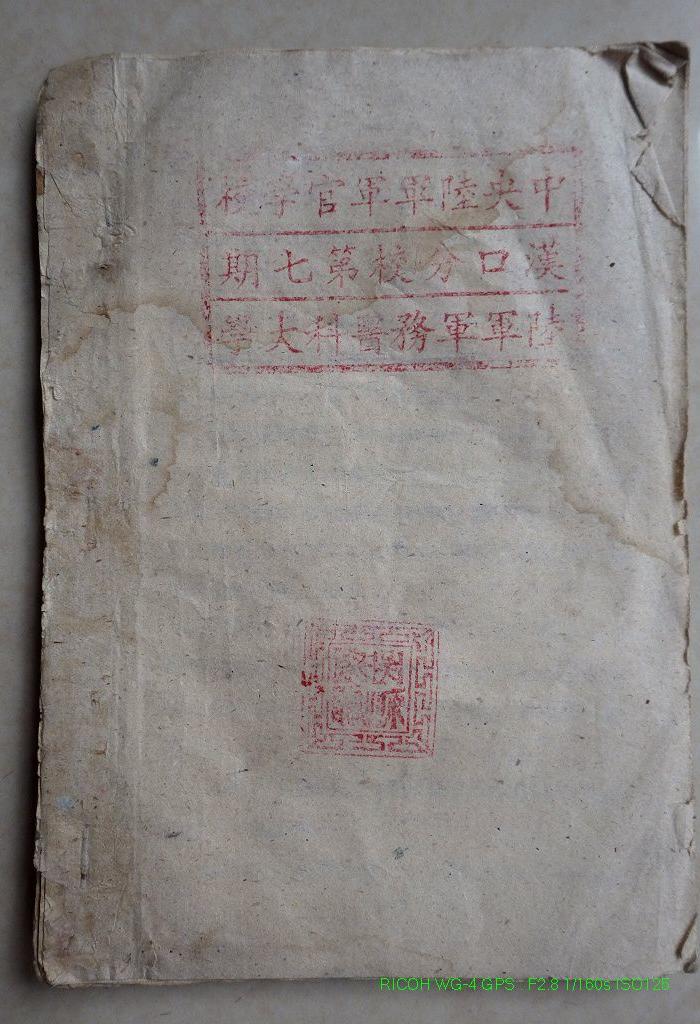 中央陸軍軍官學校
漢口分校第七期
陸軍軍務醫科大學
RICOH WG-4 GPS F2.8 1/160s ISO125